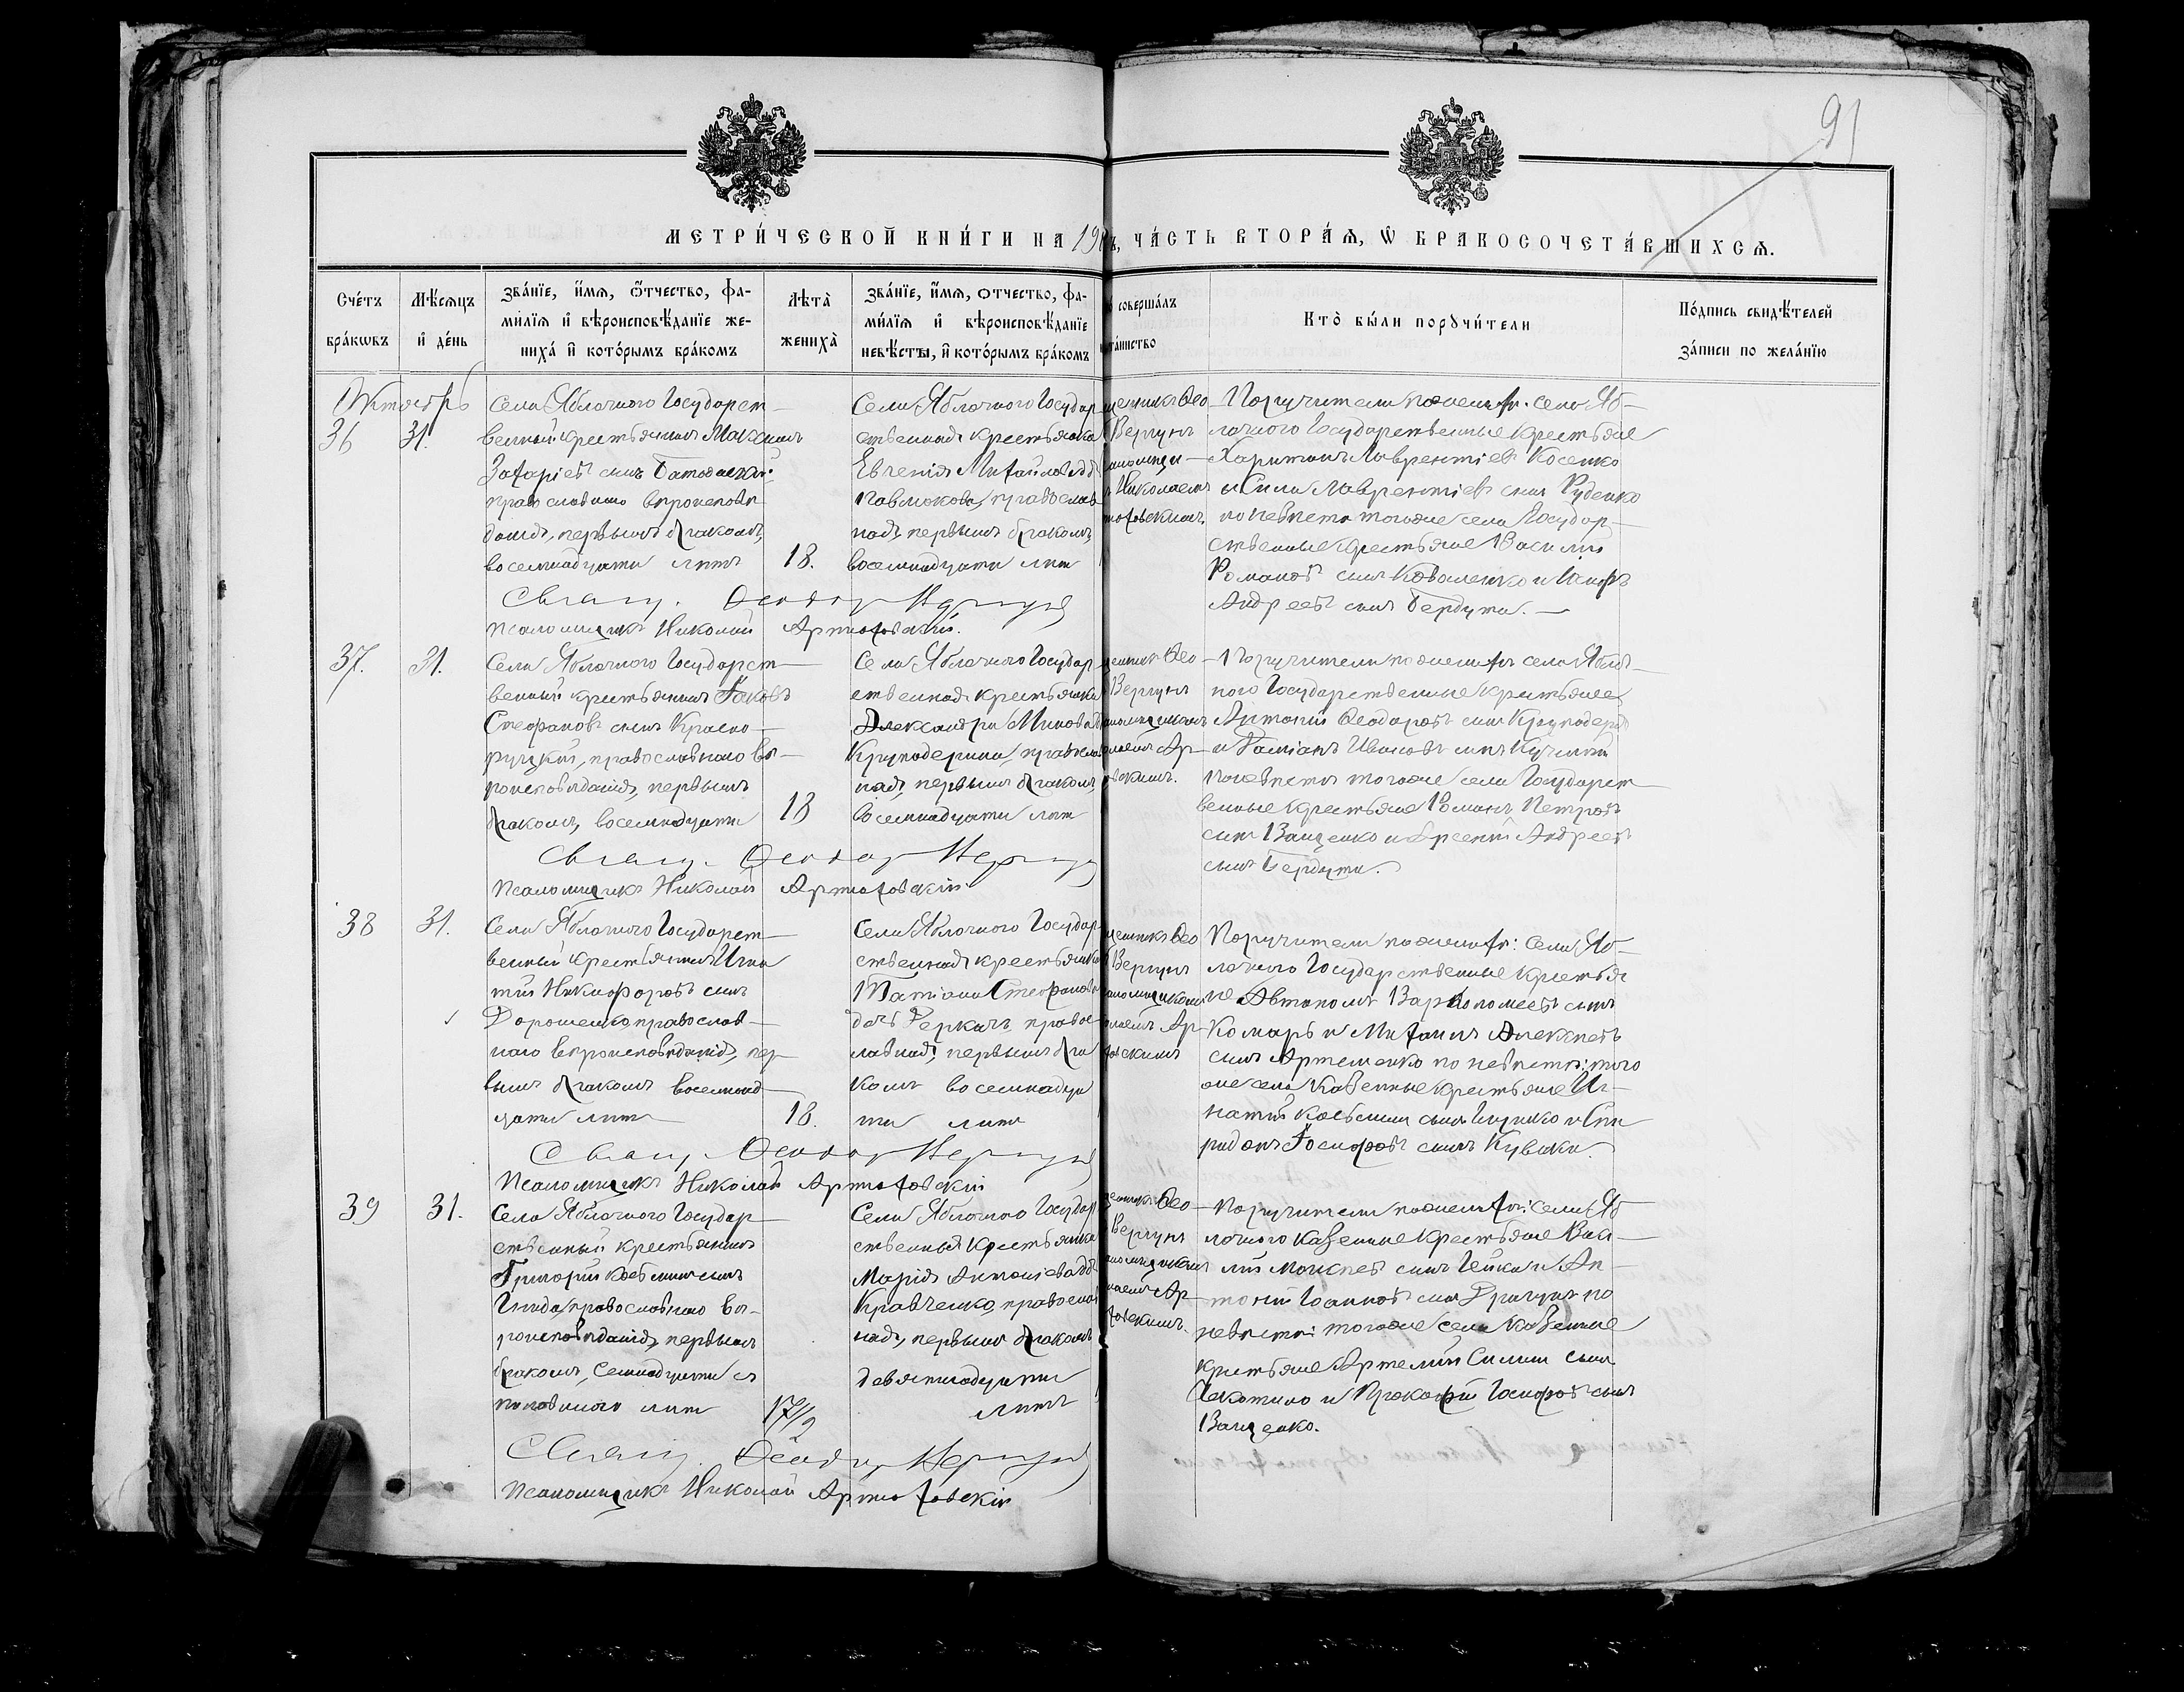 91
МЕТРИ́ЧЕСКОЙ КНИ́ГИ НА 19 ЧА́СТЬ ВТОРА́Ѧ, Ѡ БРАКОСОЧЕТА́ВШИХСѦ.
Сче́тъ бра́кѡвъ
Мѣ́сѧцъ и҆ де́нь
Зва́нїе, и҆́мѧ, ѻ҆́тчество, фа-
ми́лїѧ и҆ вѣроисповѣ́данїе же-
ниха́ и҆ кото́рымъ бра́комъ
Лѣта̀ жениха̀
Зва́нїе, и҆́мѧ, отчество, фа-
ми́лїѧ и҆ вѣроисповѣ́данїе
невѣ́сты, и҆ кото́рымъ бра́комъ
совершалъ
таинство
Кто̀ бы́ли порꙋчи́тели
По́дпись свидѣ́телей
за́писи по жела́нїю
Октябрь
36 31.
Села Яблочного Государст-
венный крестьянинъ Максимъ
Захаріевъ сынъ
православнаго вѣроисповѣ-
данія, первымъ бракомъ,
восемнадцати лѣтъ
18.
Села Яблочного Государ
ственная крестьянка
Евгенія Михайлова
Павлюкова, православ
ная, первымъ бракомъ,
восемнадцати лѣтъ
Ѳео-
Вергунъ
Николаемъ
Поручители по жених. села Яб-
лочного Государственные крестьяне
Харитонъ Лаврентіевъ Косенко
и Сила Лаврентіевъ сынъ Руденко
по невѣстѣ тогоже села Государ-
ственные крестьяне Василій
Романовъ сынъ Коваленко и
Андреевъ сынъ Бердута.
Свящ. Ѳеодоръ Вергунъ
Псаломщикъ Николай Артюховскій.
37. 31.
Села Яблочного Государст-
венный крестьянинъ Іаковъ
Стефановъ сынъ Красно-
руцкій, православнаго вѣ-
роисповѣданія, первымъ
бракомъ, восемнадцати
18
Села Яблочного Государ
ственная крестьянка
Александра
Круподерина, православ
ная, первымъ бракомъ,
восемнадцати лѣтъ
Ѳео-
Вергунъ
Ар-
Поручители по женихѣ села Яблоч-
ного Государственные крестьяне
Антоній Ѳеодоровъ сынъ Круподеря
и Даміанъ Ивановъ сынъ
по невѣстѣ тогоже села Государст
венные крестьяне Романъ Петровъ
сынъ Ващенко и Арсеній Андреевъ
сынъ Бердута.
Свящ. Ѳеодоръ Вергунъ
Псаломщикъ Николай Артюховскій
38 31.
Села Яблочного Государст-
венный крестьянинъ Игна
тій Никифоровъ сынъ
Дорошенко, православ-
наго вѣроисповѣданія, пер-
вымъ бракомъ восемнад-
цати лѣтъ
18.
Села Яблочного Государ
ственная крестьянка
Татіана Стефанова
дочь Деркачъ, правос-
лавная, первымъ бра
комъ восемнадца
ти лѣтъ
Ѳео
Вергунъ
Ар-
Поручители по женихѣ: села Яб-
лочного Государственные крестья
не Автономъ Варѳоломеевъ сынъ
Комаръ и Михаилъ Алексѣевъ
сынъ Артеменко по невѣстѣ: того
же села казенные крестьяне Иг-
натій Косьминъ сынъ и Спи
ридонъ Іосифовъ сынъ Кувика.
Свящ. Ѳеодоръ Вергунъ
Псаломщикъ Николай Артюховскій
39 31.
Села Яблочного Государ-
ственный крестьянинъ
Григорій Косьминъ сынъ
Гнида, православнаго вѣ-
роисповѣданія, первымъ
бракомъ, семнадцати съ
половиною лѣтъ
17 1/2
Села Яблочного Государ
ственная крестьянка
Марія Антоніева
Кравченко, православ
ная, первымъ бракомъ
девятнадцати
лѣтъ
Ѳео-
Вергунъ
Ар-
Поручители по женихѣ: села Яб
лочного казенные крестьяне Васи-
лій Моисѣевъ сынъ и Ан-
тоній Іоанновъ сынъ по
невѣстѣ: тогоже села казенные
крестьяне Артемій Силинъ сынъ
и Прокофій Іосифовъ сынъ
Ващенко.
Свящ. Ѳеодоръ Вергунъ
Псаломщикъ Николай Артюховскій